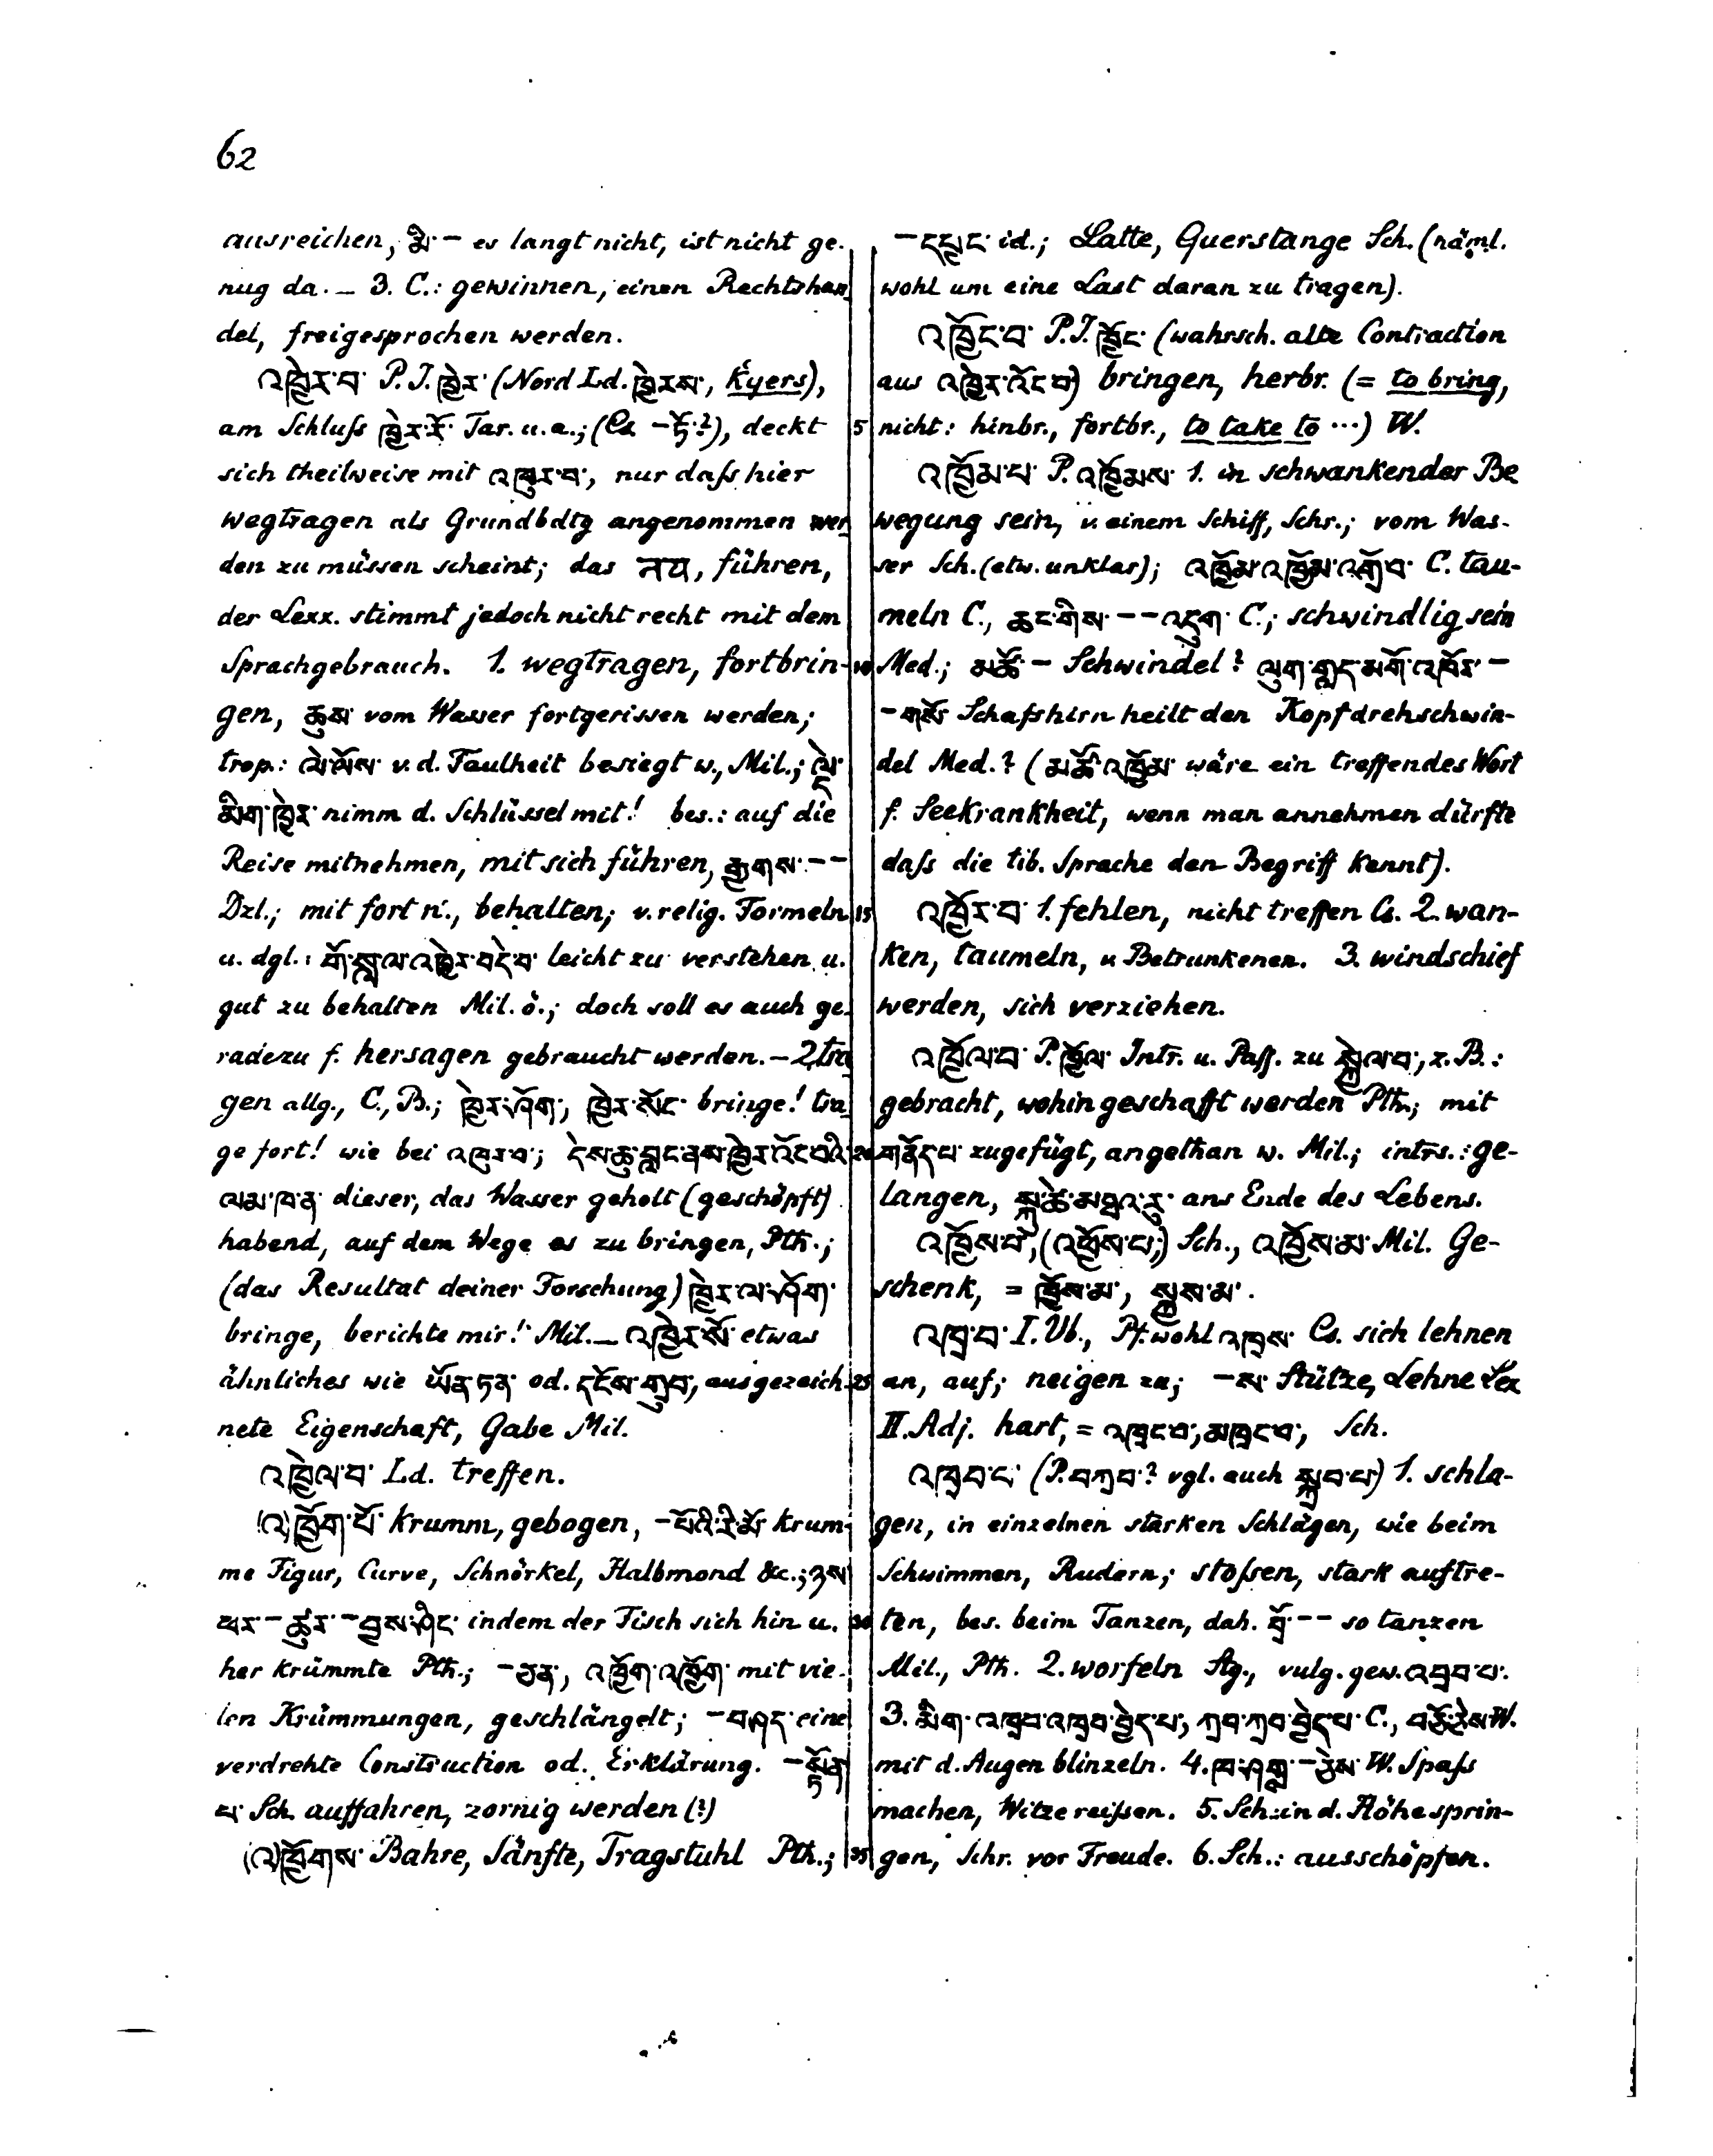 62
ausreichen, མི་ – es langt nicht, ist nicht ge-
nug da. – 3. C.: gewinnen, einen Rechtshan
del, freigesprochen werden.
འཁྱེར་བ་ P. I. ཁྱེར་ (Nord Ld. ཁྱེརས་, ḱyers),
am Schluſs ཁྱེར་རོ་ Tar. u. a.; (Cs –ཏོ་?), deckt
sich theilweise mit འཁུར་བ་, nur daſs hier
wegtragen als Grundbdtg angenommen wer
den zu müssen scheint; das नय, führen,
der Lexx. stimmt jedoch nicht recht mit dem
Sprachgebrauch. 1. wegtragen, fortbrin-
gen, ཆུས་ vom Wasser fortgerissen werden;
trop.: ལེ་ལོས་ v. d. Faulheit besiegt w., Mil.; ལྡེ་
མིག་ཁྱེར་ nimm d. Schlüssel mit! bes.: auf die
Reise mitnehmen, mit sich führen, རྒྱགས་ – –
Dzl.; mit fort n., behalten; v. relig. Formeln
u. dgl.: གོ་སླ་ལ་འཁྱེར་བདེ་བ་ leicht zu verstehen u.
gut zu behalten Mil. ö.; doch soll es auch ge-
radezu f. hersagen gebraucht werden. – 2. tra
gen allg., C., B.; ཁྱེར་ཤོག་, ཁྱེར་སོང་ bringe! tra
ge fort! wie bei འཁུར་བ་; དེས་ཆུ་བླང་ནས་ཁྱེར་འོང་བའི་
ལམ་ཁ་ན་ dieser, das Wasser geholt (geschöpft)
habend, auf dem Wege es zu bringen, Pth.;
(das Resultat deiner Forschung) ཁྱེར་ལ་ཤོག་
bringe, berichte mir! Mil. – འཁྱེར་སོ་ etwas
ähnliches wie ཡོན་ཏན་ od. དངོས་གྲུབ་, ausgezeich-
nete Eigenschaft, Gabe Mil.
འཁྱེལ་བ་ Ld. treffen.
(འ)ཁྱོག་པོ་ krumm, gebogen, –པོའི་རི་མོ་ krum-
me Figur, Curve, Schnörkel, Halbmond &c.;
ཕར་ – ཚུར་ – བྱས་ཤིང་ indem der Tisch sich hin u.
her krümmte Pth.; –ཅན་, འཁྱོག་འཁྱོག་ mit vie-
len Krümmungen, geschlängelt; –བཤད་ eine
verdrehte Construction od. Erklärung. –སྟོན་
པ་ Sch. auffahren, zornig werden (?)
(འ)ཁྱོགས་ Bahre, Sänfte, Tragstuhl Pth.;
–དཔྱང་ id.; Latte, Querstange Sch. (näml.
wohl um eine Last daran zu tragen).
འཁྱོང་བ་ P. I. ཁྱོང་ (wahrsch. alte Contraction
aus འཁྱེར་འོང་བ་) bringen, herbr. (= to bring,
5 nicht: hinbr., fortbr., to take to ...) W.
འཁྱོམ་པ་ P. འཁྱོམས་ 1. in schwankender Be
wegung sein, v. einem Schiff, Schr.; vom Was-
ser Sch. (etw. unklar); འཁྱོམ་འཁྱོམ་འགྲོ་བ་ C. tau-
meln C., ཆང་གིས་ – – འདུག་ C.; schwindlig sein
10 Med.; མཚོ་ – Schwindel? ལུག་ཀླད་མགོ་འཁོར་ –
–གསོ་ Schafshirn heilt den Kopfdrehschwin-
del Med.? (མཚོ་འཁྱོམ་ wäre ein treffendes Wort
f. Seekrankheit, wenn man annehmen dürfte
daſs die tib. Sprache den Begriff kennt).
15 འཁྱོར་བ་ 1. fehlen, nicht treffen Cs. 2. wan-
ken, taumeln, v. Betrunkenen. 3. windschief
werden, sich verziehen.
འཁྱོལ་བ་ P. ཁྱོལ་ Intr. u. Pass. zu སྐྱེལ་བ་, z. B.:
gebracht, wohin geschafft werden Pth.; mit
20 གནོད་པ་ zugefügt, angethan w. Mil.; intrs.: ge-
langen, སྐུ་ཚེ་མཐའ་རུ་ ans Ende des Lebens.
འཁྱོས་བ་, (འཁྱོས་པ་;) Sch., འཁྱོས་མ་ Mil. Ge-
schenk, = ཁྱོས་མ་, སྐྱས་མ་.
འཁྲ་བ་ I. Vb., Pf. wohl འཁྲས་ Cs. sich lehnen
25 an, auf; neigen zu; –ས་ Stütze, Lehne Lex
II. Adj. hart, = འཁྲང་བ་, མཁྲང་བ་, Sch.
འཁྲབ་པ་ (P. བཀྲབ་? vgl. auch སྐྲབ་པ་) 1. schla-
gen, in einzelnen starken Schlägen, wie beim
Schwimmen, Rudern; stoſsen, stark auftre-
30 ten, bes. beim Tanzen, dah. བྲོ་ – – so tanzen
Mil., Pth. 2. worfeln Stg., vulg. gew. འཕྲབ་པ་.
3. མིག་འཁྲབ་འཁྲབ་བྱེད་པ་, ཀྲབ་ཀྲབ་བྱེད་པ་ C., W.
mit d. Augen blinzeln. 4. W. Spaſs
machen, Witze reiſsen. 5. Sch.: in d. Höhe sprin-
35 gen, Schr. vor Freude. 6. Sch.: ausschöpfen.